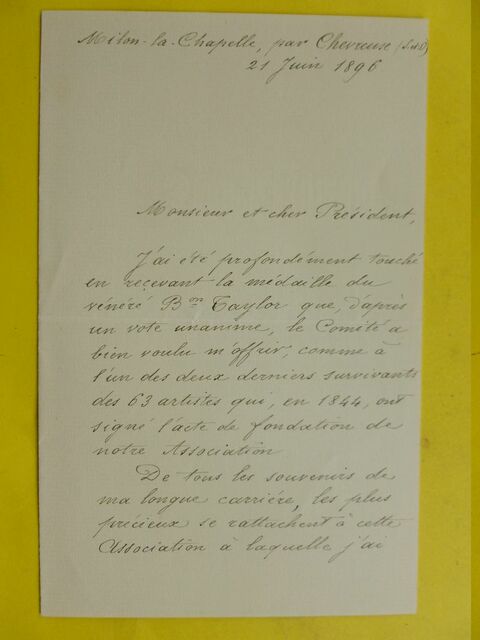 Milon-la-Chapelle, par Chevreuse (S et O)
21 Juin 1896
Monsieur et cher Président,
J'ai été profondément touché
en recevant la médaille du
vénéré Bon Taylor que, d'après
un vote unanime, le Comité a
bien voulu m'offrir, comme à
l'un des deux derniers survivants
des 63 artistes qui, en 1844, ont
signé l'acte de fondation de
notre Association
De tous les souvenirs de
ma longue carrière, les plus
précieux se rattachent à cette
Association à laquelle j'ai